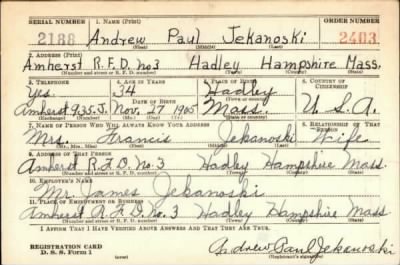 SERIAL NUMBER 1. NAME (Print) ORDER NUMBER
2188 Andrew Paul Jekanoski 2403
(First) (Middle) (Last)
2. ADDRESS (Print)
Amherst R.F.D. no 3 Hadley Hampshire Mass.
(Number and street or R. F. D. number) (Town) (County) (State)
3. TELEPHONE 4. AGE IN YEARS 5. PLACE OF BIRTH 6. COUNTRY OF CITIZENSHIP
Yes. 34 Hadley
DATE OF BIRTH
Amherst 935-J. Nov. 27 1905 Mass. U.S.A.
7. NAME OF PERSON WHO WILL ALWAYS KNOW YOUR ADDRESS 8. RELATIONSHIP OF THAT PERSON
Mrs. Francis Jekanoski Wife
(Mr., Mrs., Miss) (First) (Middle) (Last)
9. ADDRESS OF THAT PERSON
Amherst R.F.D. No. 3 Hadley Hampshire Mass
(Number and street or R. F. D. number) (Town) (County) (State)
10. EMPLOYER'S NAME
Mr. James Jekanoski
11. PLACE OF EMPLOYMENT OR BUSINESS
Amherst R.F.D. No. 3 Hadley Hampshire Mass
(Number and street or R. F. D. number) (Town) (County) (State)
I AFFIRM THAT I HAVE VERIFIED ABOVE ANSWERS AND THAT THEY ARE TRUE.
REGISTRATION CARD
D. S. S. Form 1 Andrew Paul Jekanoski
(Registrant's signature)